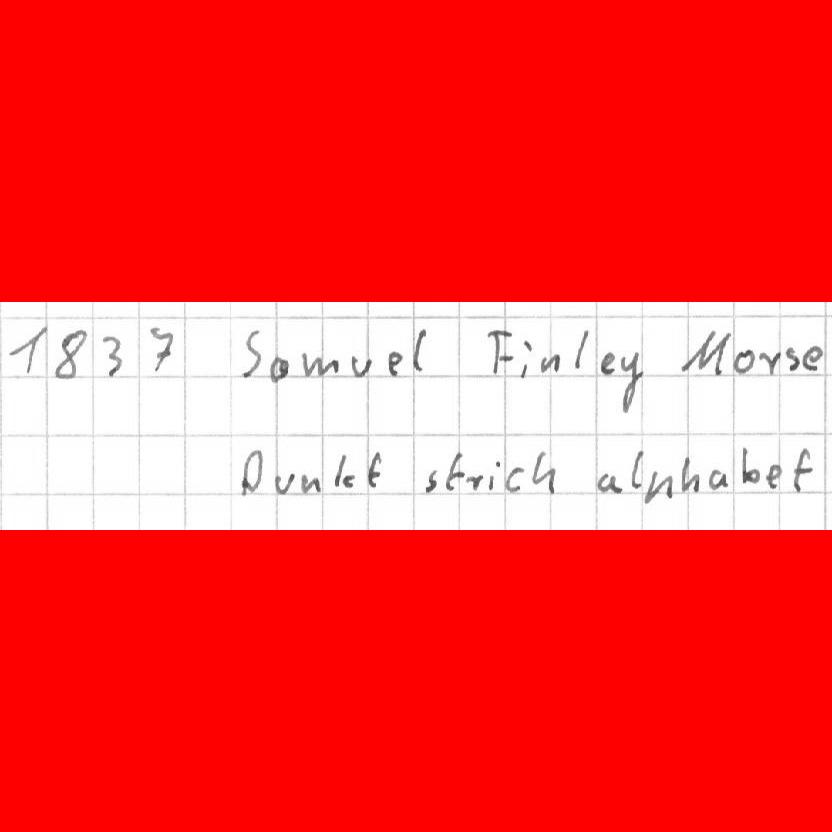 1837 Samuel Finley Morse
Punkt strich alphabet